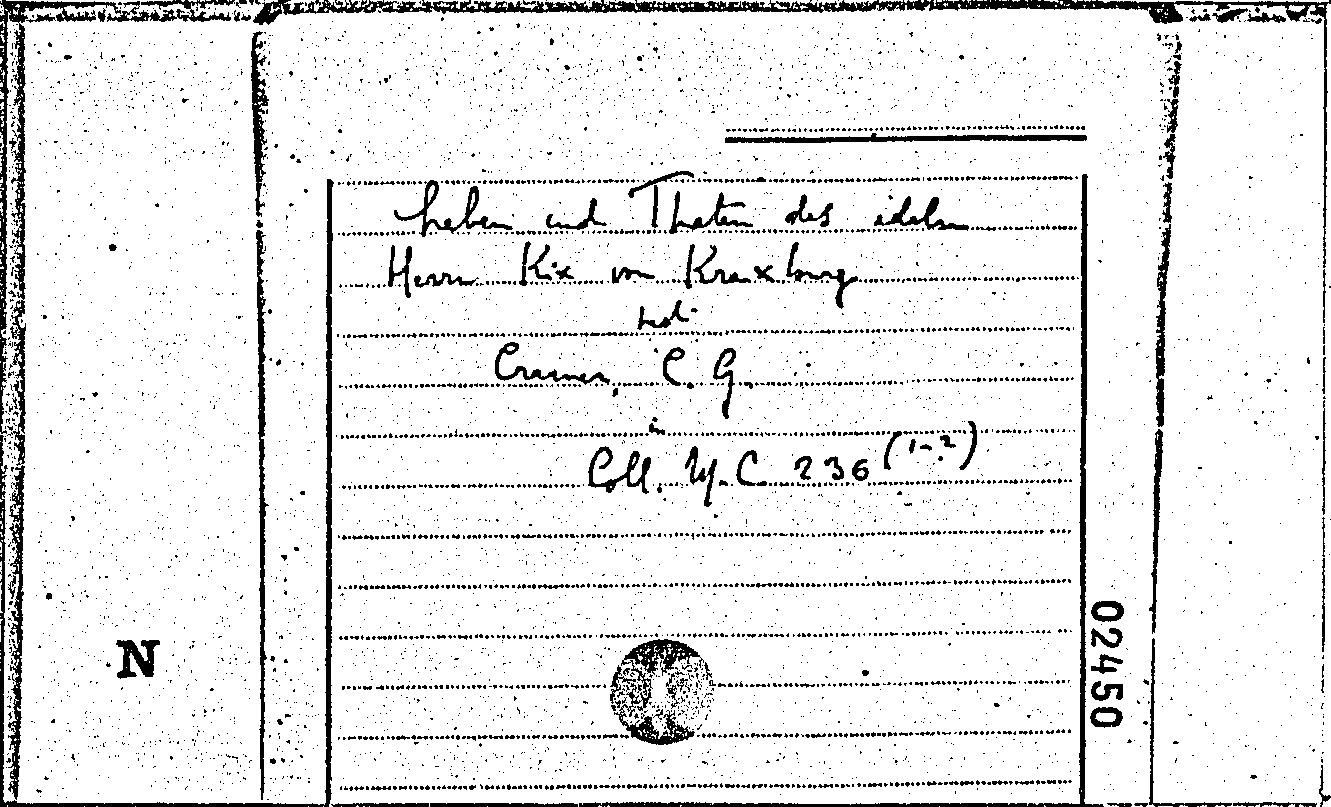 Leben und Thaten des edeln
Herrn Kix von Kraxburg
Cramer, C. G.
in
Coll. M. C. 236 (1-2)
N
02450